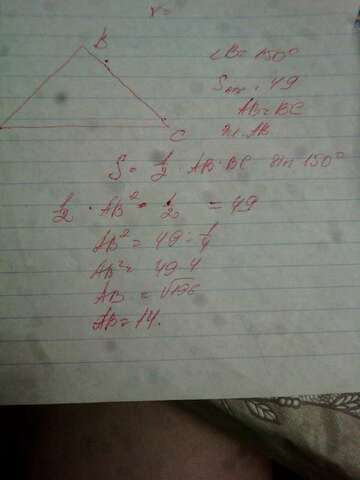 r=
B
∠B = 150°
S = 49
AB = BC
AB
C
S = 1/2 · AB · BC sin 150°
1/2 · AB² · 1/2 = 49
AB² = 49 : 1/4
AB² = 49 · 4
AB = √196
AB = 14.